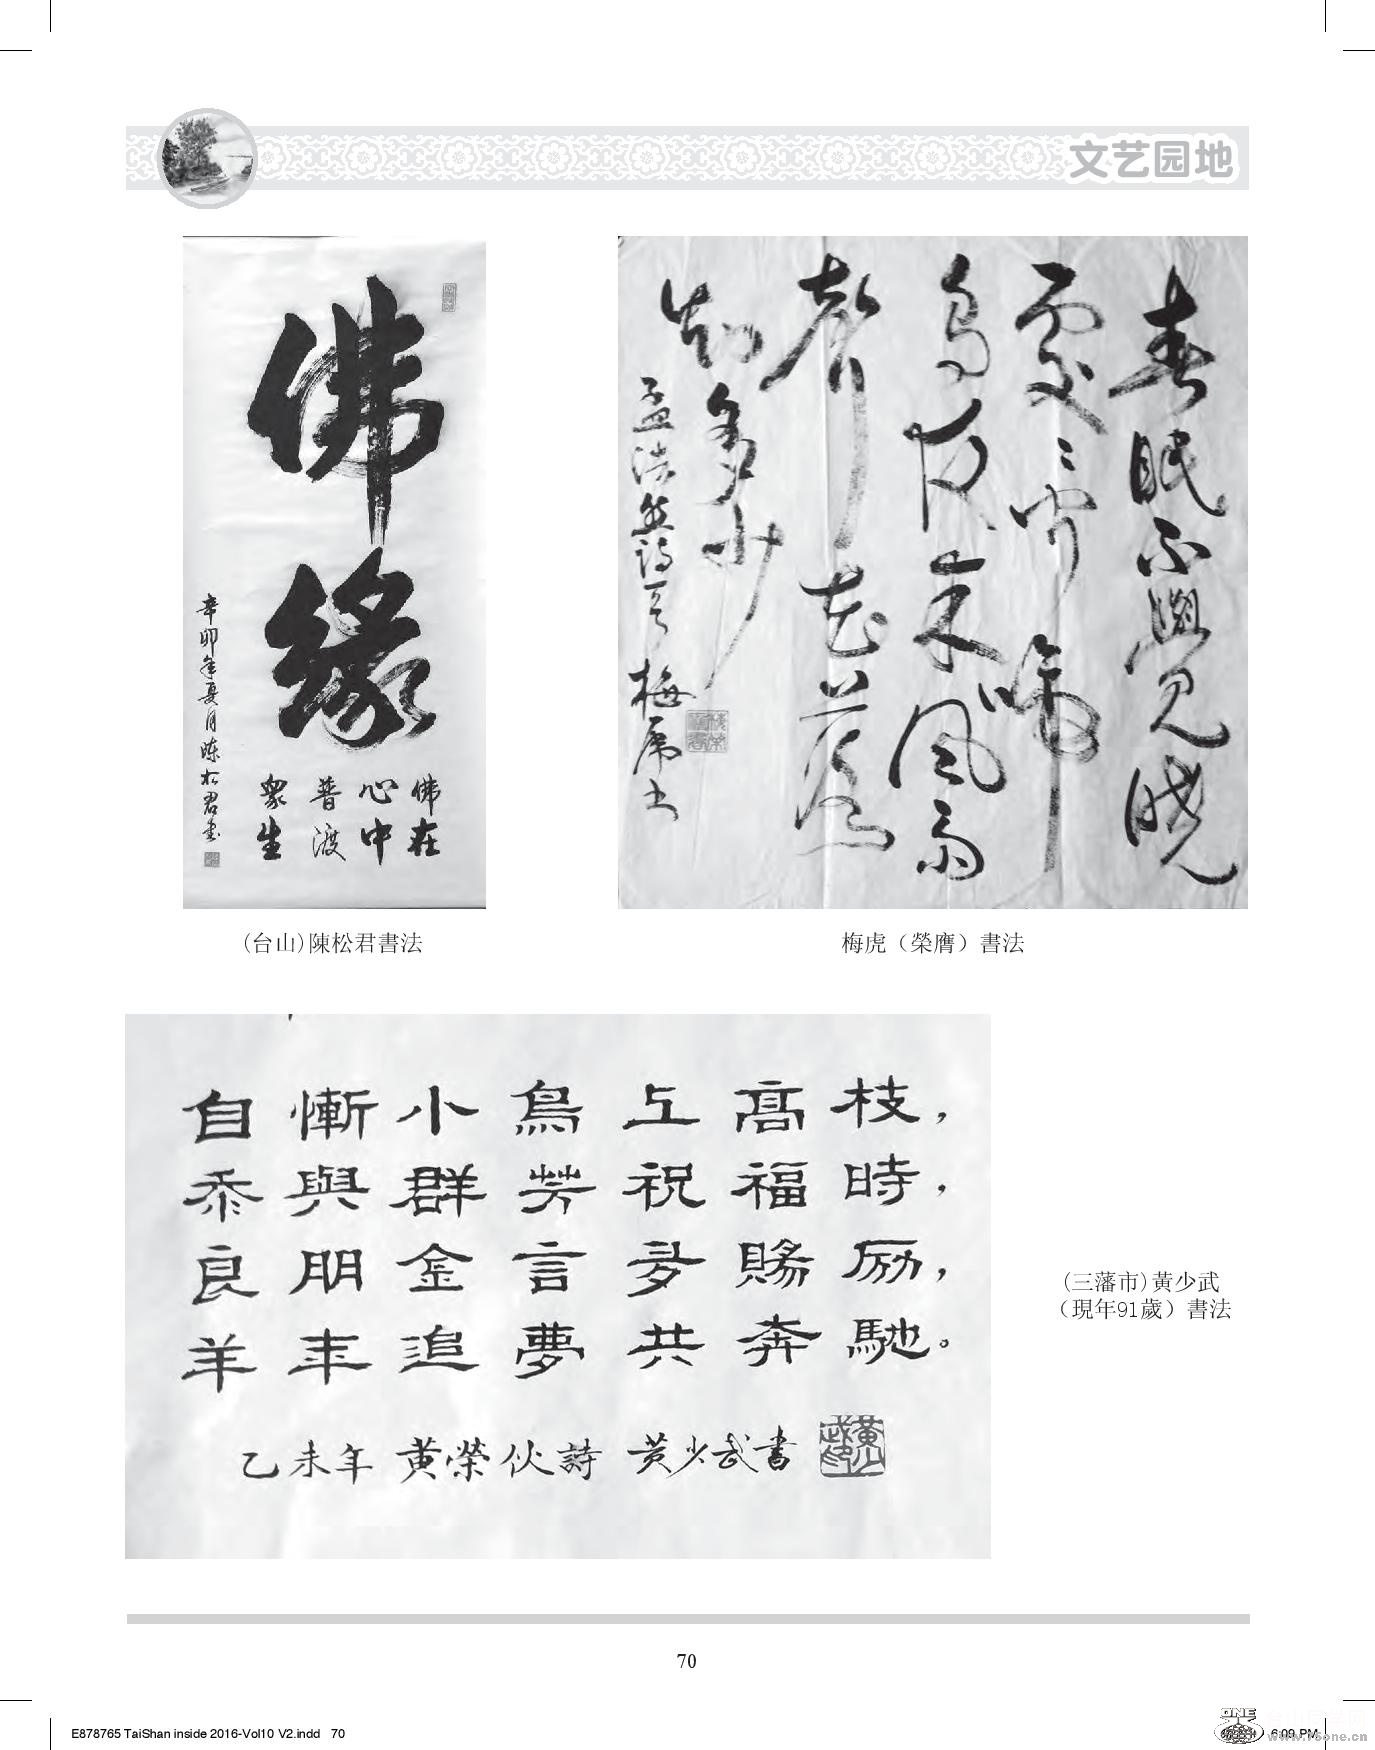 文艺园地
佛緣
佛在
心中
普渡
眾生
辛卯年夏月陳松君書
(台山)陳松君書法
春眠不覺曉
處々聞啼
鳥夜來風雨
聲花落
知多少
孟浩然詩一首 梅虎书
梅虎（榮膺）書法
自慚小鳥上高枝，
忝與群芳祝福時，
良朋金言多賜励，
羊年追夢共奔馳。
乙未年 黄榮伙詩 黄少武書
(三藩市)黃少武
（現年91歲）書法
70
E878765 TaiShan inside 2016-Vol10 V2.indd 70
6:09 PM
ONE
www.75one.cn